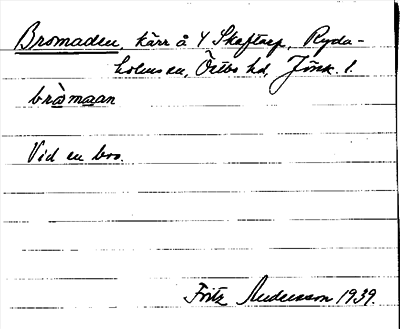 Bromaden, kärr å Y Skaftarp, Ryda-
holms sn, Östbo hd, Jönk. l.
bròmaan
Vid en bro.
Fritz Andersson 1939.